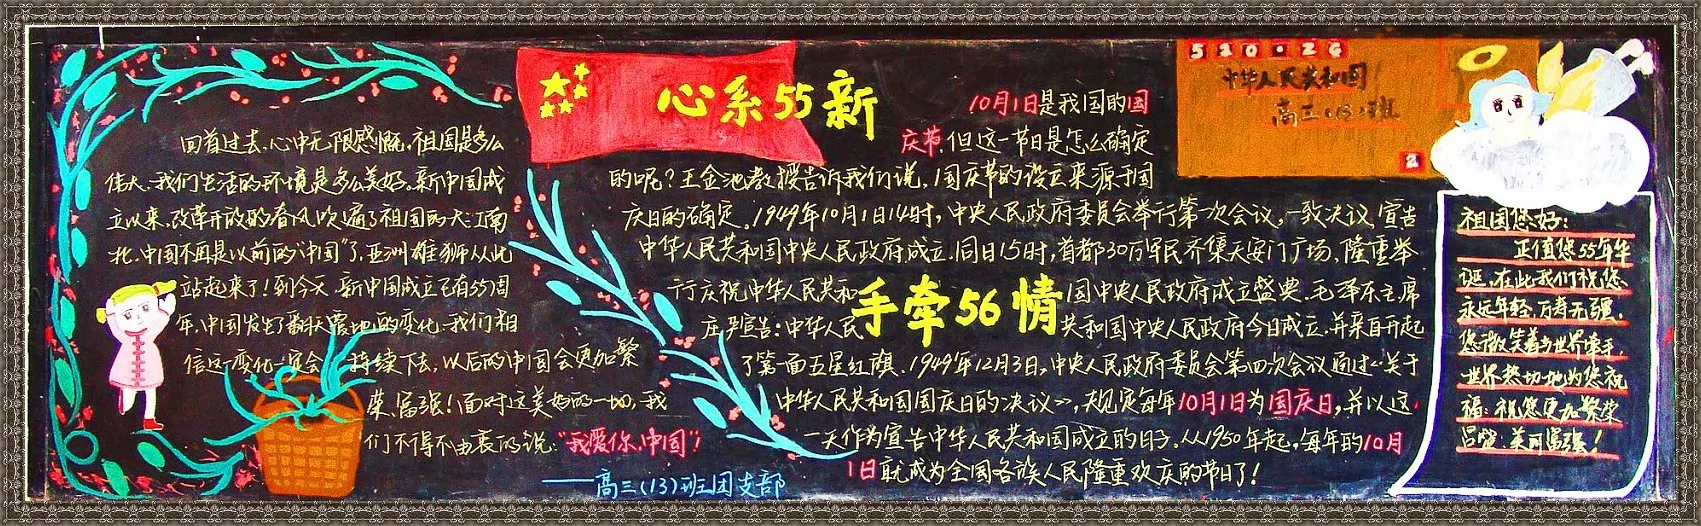 心系55新
手牵56情
回首过去,心中无限感慨,祖国是多么
伟大,我们生活的环境是多么美好,新中国成
立以来,改革开放的春风吹遍了祖国的大江南
北,中国不再是以前的“中国”了,亚洲雄狮从此
站起来了!到今天,新中国成立已有55周
年,中国发生了翻天震地的变化,我们相
信这一变化一定会持续下去,以后的中国会更加繁
荣,富强!面对这美好的一切,我
们不得不由衷的说:“我爱你,中国”!
——高三(13)班团支部
10月1日是我国的国
庆节,但这一节日是怎么确定
的呢?王金池教授告诉我们说,国庆节的设立来源于国
庆日的确定。1949年10月1日14时,中央人民政府委员会举行第一次会议,一致决议,宣告
中华人民共和国中央人民政府成立.同日15时,首都30万军民齐集天安门广场,隆重举
行庆祝中华人民共和国中央人民政府成立盛典.毛泽东主席
庄严宣告:中华人民共和国中央人民政府今日成立.并亲自升起
了第一面五星红旗.1949年12月3日,中央人民政府委员会第四次会议通过《关于
中华人民共和国国庆日的决议》,规定每年10月1日为国庆日,并以这
一天作为宣告中华人民共和国成立的日子.从1950年起,每年的10月
1日就成为全国各族人民隆重欢庆的节日了!
中华人民共和国
高三(13)班
2
祖国您好:
正值您55年华
诞,在此我们祝您
永远年轻,万寿无疆,
您微笑着与世界牵手,
世界热切地为您祝
福:祝您更加繁荣
昌盛、美丽富强!